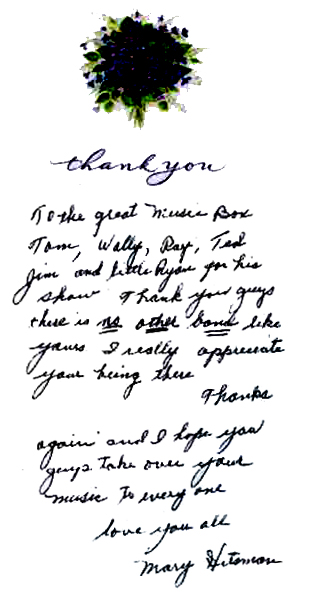 thank you
To the great Music Box
Tom, Wally, Ray, Ted
Jim and little Ryan for his
show Thank you guys
there is no other band like
yours I really appreciate
your being there
Thanks
again and I hope you
guys take over your
music to every one
love you all
Mary